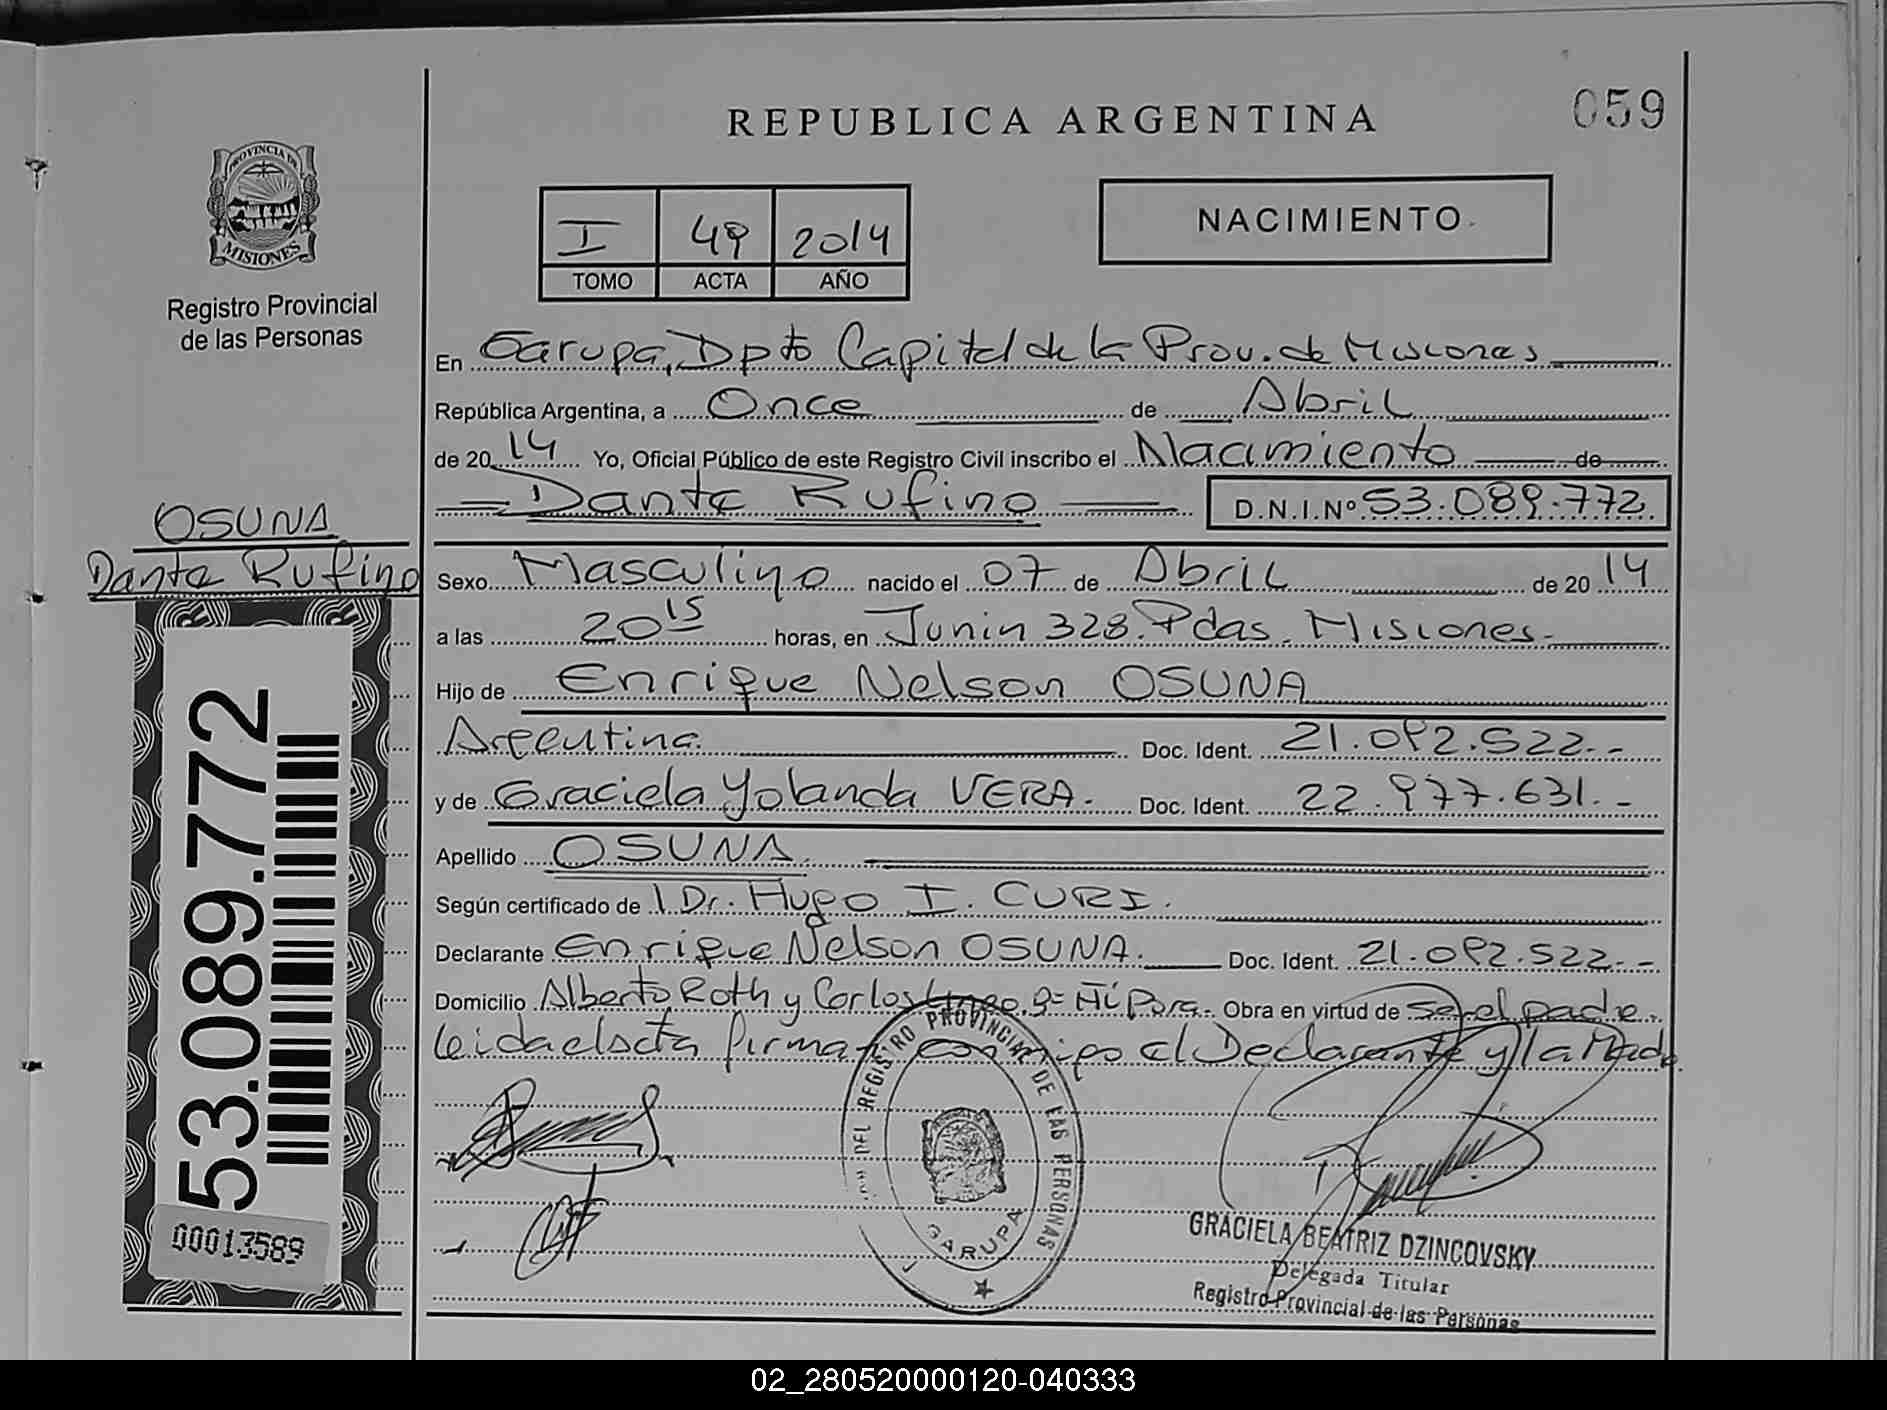 REPUBLICA ARGENTINA
059
PROVINCIA DE
MISIONES
Registro Provincial
de las Personas
I 49 2014
TOMO ACTA AÑO
NACIMIENTO
En Garupa, Dpto Capital de la Prov. de Misiones
República Argentina, a Once de Abril
de 2014 Yo, Oficial Público de este Registro Civil inscribo el Nacimiento de
Dante Rufino D.N.I.Nº 53.089.772
OSUNA
Dante Rufino
Sexo Masculino nacido el 07 de Abril de 2014
a las 20 15 horas, en Junin 328. Pdas. Misiones.
Hijo de Enrique Nelson OSUNA
Argentina. Doc. Ident. 21.092.522.-
y de Graciela Yolanda VERA. Doc. Ident. 22.977.631.-
Apellido OSUNA.
Según certificado de Dr. Hugo I. CURI.
Declarante Enrique Nelson OSUNA. Doc. Ident. 21.092.522.-
Domicilio Alberto Roth y Carlos Obra en virtud de ser el padre.
Leida el acta firman conmigo el Declarante y la Madre
53.089.772
00013589
DEL REGISTRO PROVINCIAL DE LAS PERSONAS
GARUPA
GRACIELA BEATRIZ DZINCOVSKY
Delegada Titular
Registro Provincial de las Personas
02_280520000120-040333